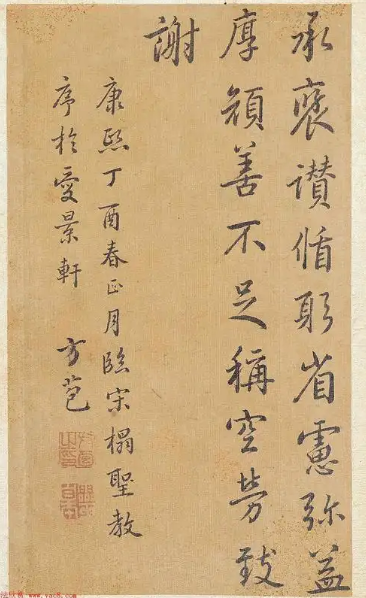 承褒讃循躬省慮弥益
厚顔善不足稱空勞致
謝
康熙丁酉春正月臨宋榻聖教
序於愛景軒 方苞
www.yac8.com